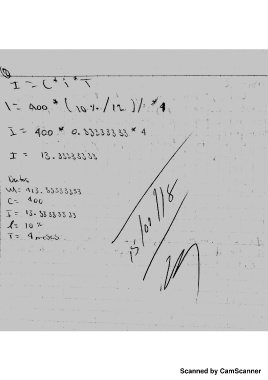 I = C * i * T
I = 400 * (10 % / 12) % * 4
I = 400 * 0.33333333 * 4
I = 13.33333333
Datos
M = 413.33333333
C = 400
I = 13.33333333
i = 10 %
T = 4 meses
Scanned by CamScanner